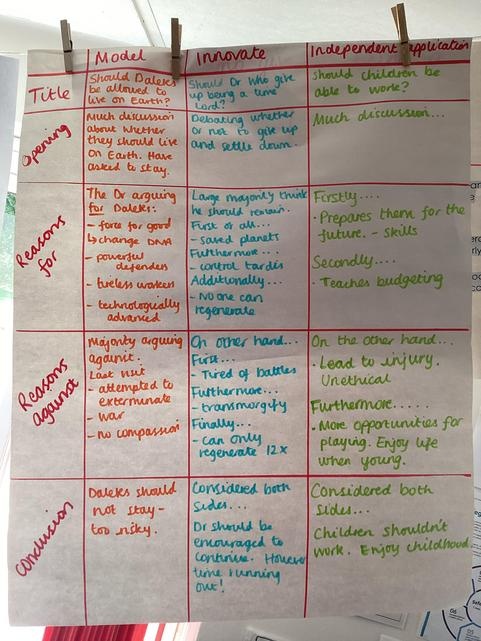 Model
Innovate
Independent application
Title
Should Daleks
be allowed to
live on Earth?
Should Dr Who give
up being a time
Lord?
Should children be
able to work?
Opening
Much discussion
about whether
they should live
on Earth. Have
asked to stay.
Debating whether
or not to give up
and settle down.
Much discussion...
Reasons
for
The Dr arguing
for Daleks:
- force for good
↳ change DNA
- powerful
defenders
- tireless workers
- technologically
advanced
Large majority think
he should remain.
First of all...
- saved planets
Furthermore...
- control tardis
Additionally...
- No one can
regenerate
Firstly....
• Prepares them for the
future. - skills
Secondly....
• Teaches budgeting
Reasons
against
Majority arguing
against.
Last visit
- attempted to
exterminate
- war
- no compassion
On other hand...
First...
- Tired of battles
Furthermore...
- transmogrify
Finally...
- can only
regenerate 12x
On the other hand...
• Lead to injury.
Unethical
Furthermore.....
• More opportunities for
playing. Enjoy life
when young.
Conclusion
Daleks should
not stay -
too risky.
Considered both
sides...
Dr should be
encouraged to
continue. However
time running
out!
Considered both
sides...
Children shouldn't
work. Enjoy childhood